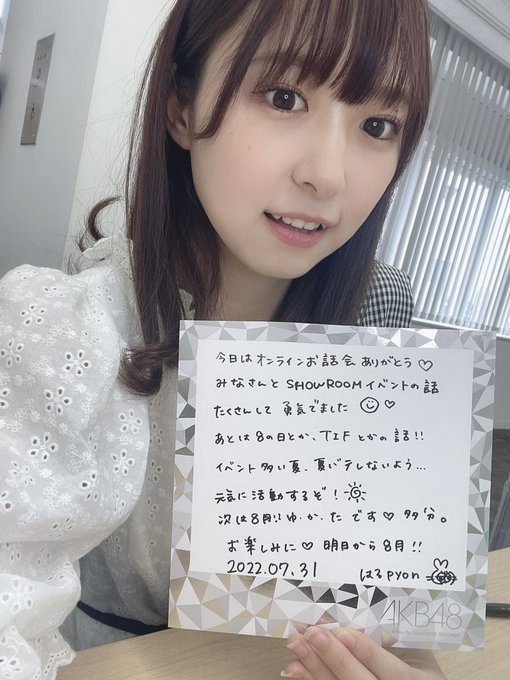 今日は オンラインお話会 ありがとう ♡
みなさんと SHOWROOMイベントの話
たくさんして 勇気でました ☺ ♡
あとは8の日とか、TIFとかの話!!
イベント多い夏、夏バテしないよう…
元気に活動するぞ!
次は8月!! ゆ.か.た です♡ 多分。
お楽しみに♡ 明日から8月!!
2022.07.31 はるpyon
AKB48